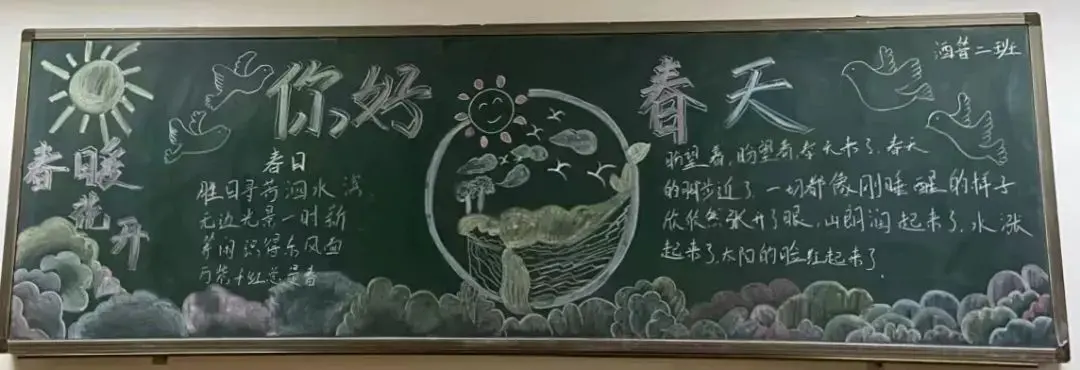 你好 春天
酒管二班
春暖
花
开
春日
胜日寻芳泗水滨
无边光景一时新
等闲识得东风面
万紫千红总是春
盼望着，盼望着，春天来了，春天
的脚步近了，一切都像刚睡醒的样子
欣欣然张开了眼，山朗润起来了，水涨
起来了，太阳的脸红起来了.